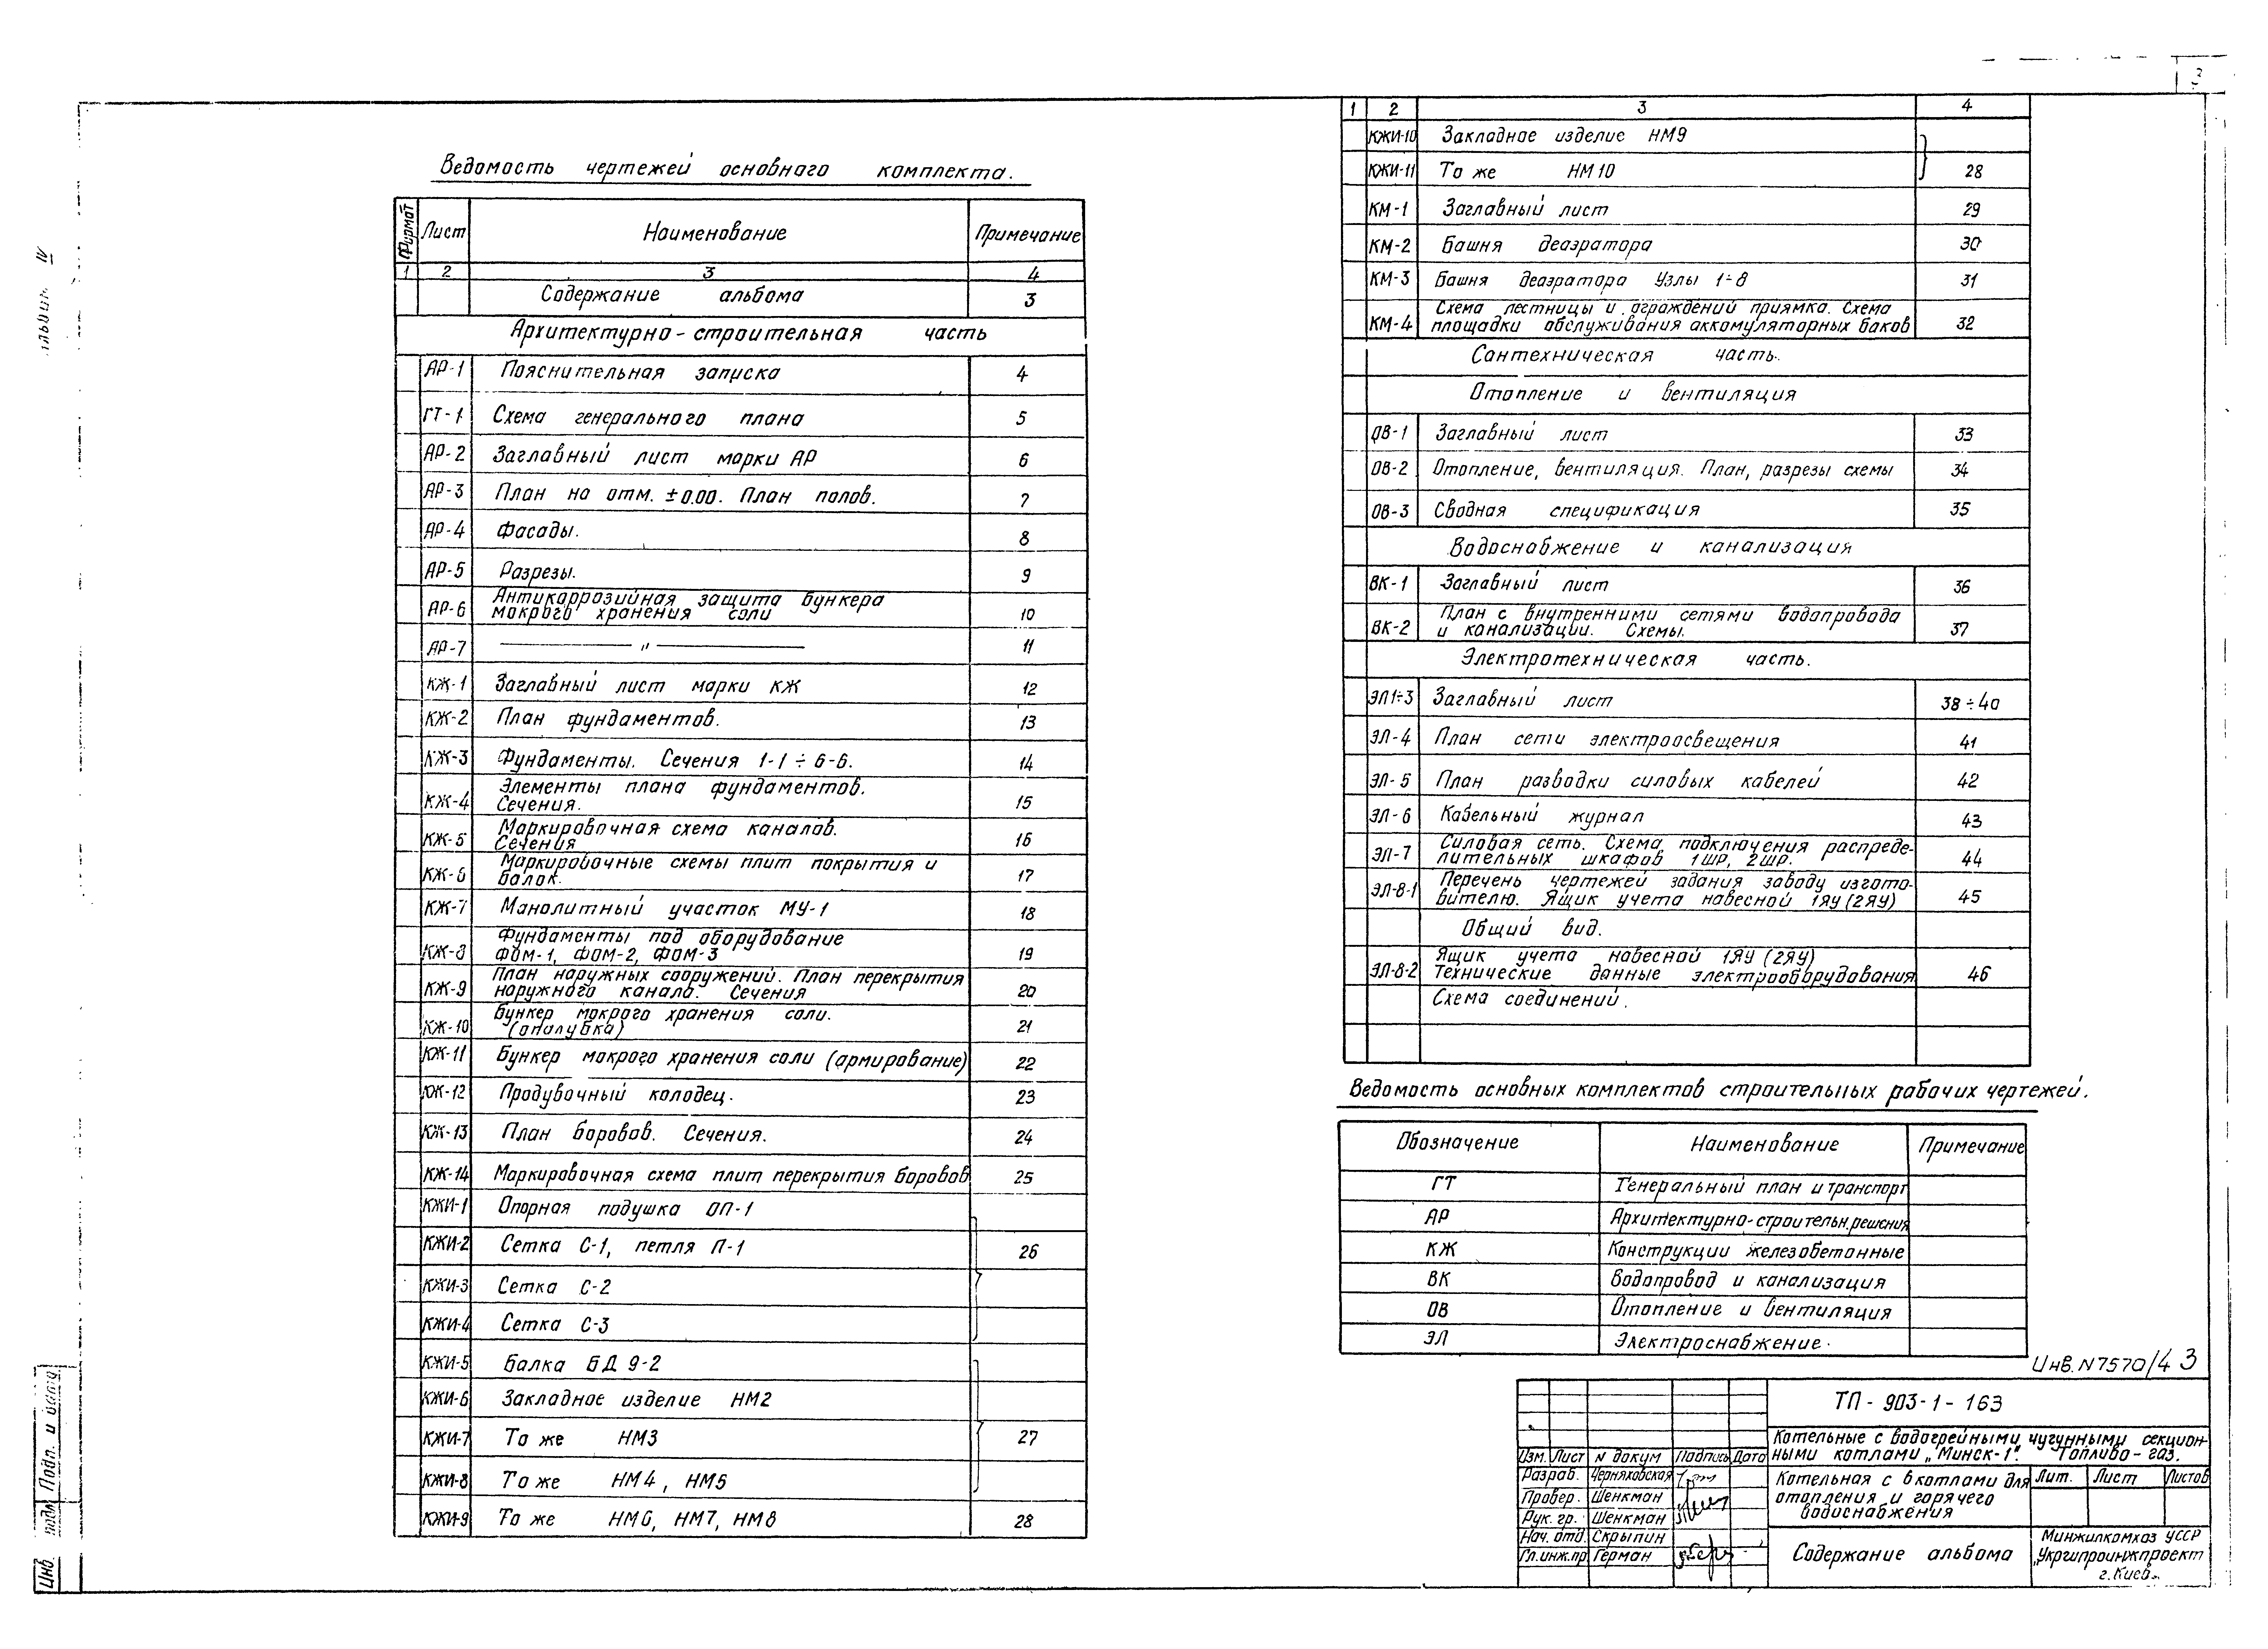 3
Альбом IV
Ведомость чертежей основного комплекта.
Формат Лист Наименование Примечание
1 2 3 4
Содержание альбома 3
Архитектурно-строительная часть
АР-1 Пояснительная записка 4
ГТ-1 Схема генерального плана 5
АР-2 Заглавный лист марки АР 6
АР-3 План на отм. ±0.00. План полов. 7
АР-4 Фасады. 8
АР-5 Разрезы. 9
АР-6 Антикоррозийная защита бункера
мокрого хранения соли 10
АР-7 — " — 11
КЖ-1 Заглавный лист марки КЖ 12
КЖ-2 План фундаментов. 13
КЖ-3 Фундаменты. Сечения 1-1 ÷ 6-6. 14
КЖ-4 Элементы плана фундаментов.
Сечения. 15
КЖ-5 Маркировочная схема каналов.
Сечения 16
КЖ-6 Маркировочные схемы плит покрытия и
балок. 17
КЖ-7 Монолитный участок МУ-1 18
КЖ-8 Фундаменты под оборудование
ФОМ-1, ФОМ-2, ФОМ-3 19
КЖ-9 План наружных сооружений. План перекрытия
наружного канала. Сечения 20
КЖ-10 Бункер мокрого хранения соли.
(опалубка) 21
КЖ-11 Бункер мокрого хранения соли (армирование) 22
КЖ-12 Продувочный колодец. 23
КЖ-13 План боровов. Сечения. 24
КЖ-14 Маркировочная схема плит перекрытия боровов 25
КЖИ-1 Опорная подушка ОП-1
КЖИ-2 Сетка С-1, петля П-1 26
КЖИ-3 Сетка С-2
КЖИ-4 Сетка С-3
КЖИ-5 Балка БД 9-2
КЖИ-6 Закладное изделие НМ2
КЖИ-7 То же НМ3 27
КЖИ-8 То же НМ4, НМ5
КЖИ-9 То же НМ6, НМ7, НМ8 28
1 2 3 4
КЖИ-10 Закладное изделие НМ9
КЖИ-11 То же НМ10 28
КМ-1 Заглавный лист 29
КМ-2 Башня деаэратора 30
КМ-3 Башня деаэратора Узлы 1÷8 31
КМ-4 Схема лестницы и ограждений приямка. Схема
площадки обслуживания аккумуляторных баков 32
Сантехническая часть.
Отопление и вентиляция
ОВ-1 Заглавный лист 33
ОВ-2 Отопление, вентиляция. План, разрезы схемы 34
ОВ-3 Сводная спецификация 35
Водоснабжение и канализация
ВК-1 Заглавный лист 36
ВК-2 План с внутренними сетями водопровода
и канализации. Схемы. 37
Электротехническая часть.
ЭЛ1÷3 Заглавный лист 38÷40
ЭЛ-4 План сети электроосвещения 41
ЭЛ-5 План разводки силовых кабелей 42
ЭЛ-6 Кабельный журнал 43
ЭЛ-7 Силовая сеть. Схема подключения распреде-
лительных шкафов 1ШР, 2ШР. 44
ЭЛ-8-1 Перечень чертежей задания заводу изгото-
вителю. Ящик учета навесной 1ЯУ (2ЯУ) 45
Общий вид.
ЭЛ-8-2 Ящик учета навесной 1ЯУ (2ЯУ)
Технические данные электрооборудования 46
Схема соединений.
Ведомость основных комплектов строительных рабочих чертежей.
Обозначение Наименование Примечание
ГТ Генеральный план и транспорт
АР Архитектурно-строительн. решения
КЖ Конструкции железобетонные
ВК Водопровод и канализация
ОВ Отопление и вентиляция
ЭЛ Электроснабжение.
Инв. N7570/4 3
ТП-903-1-163
Котельные с водогрейными чугунными секцион-
ными котлами „Минск-1". Топливо-газ.
Изм. Лист N докум Подпись Дата
Разраб. Черняховская
Провер. Шенкман
Рук. гр. Шенкман
Нач. отд. Скрыпин
Гл.инж.пр Герман
Котельная с 6 котлами для
отопления и горячего
водоснабжения
Лит. Лист Листов
Содержание альбома
Минжилкомхоз УССР
„Укргипроинжпроект
г. Киев
Инв. подл Подп. и дата